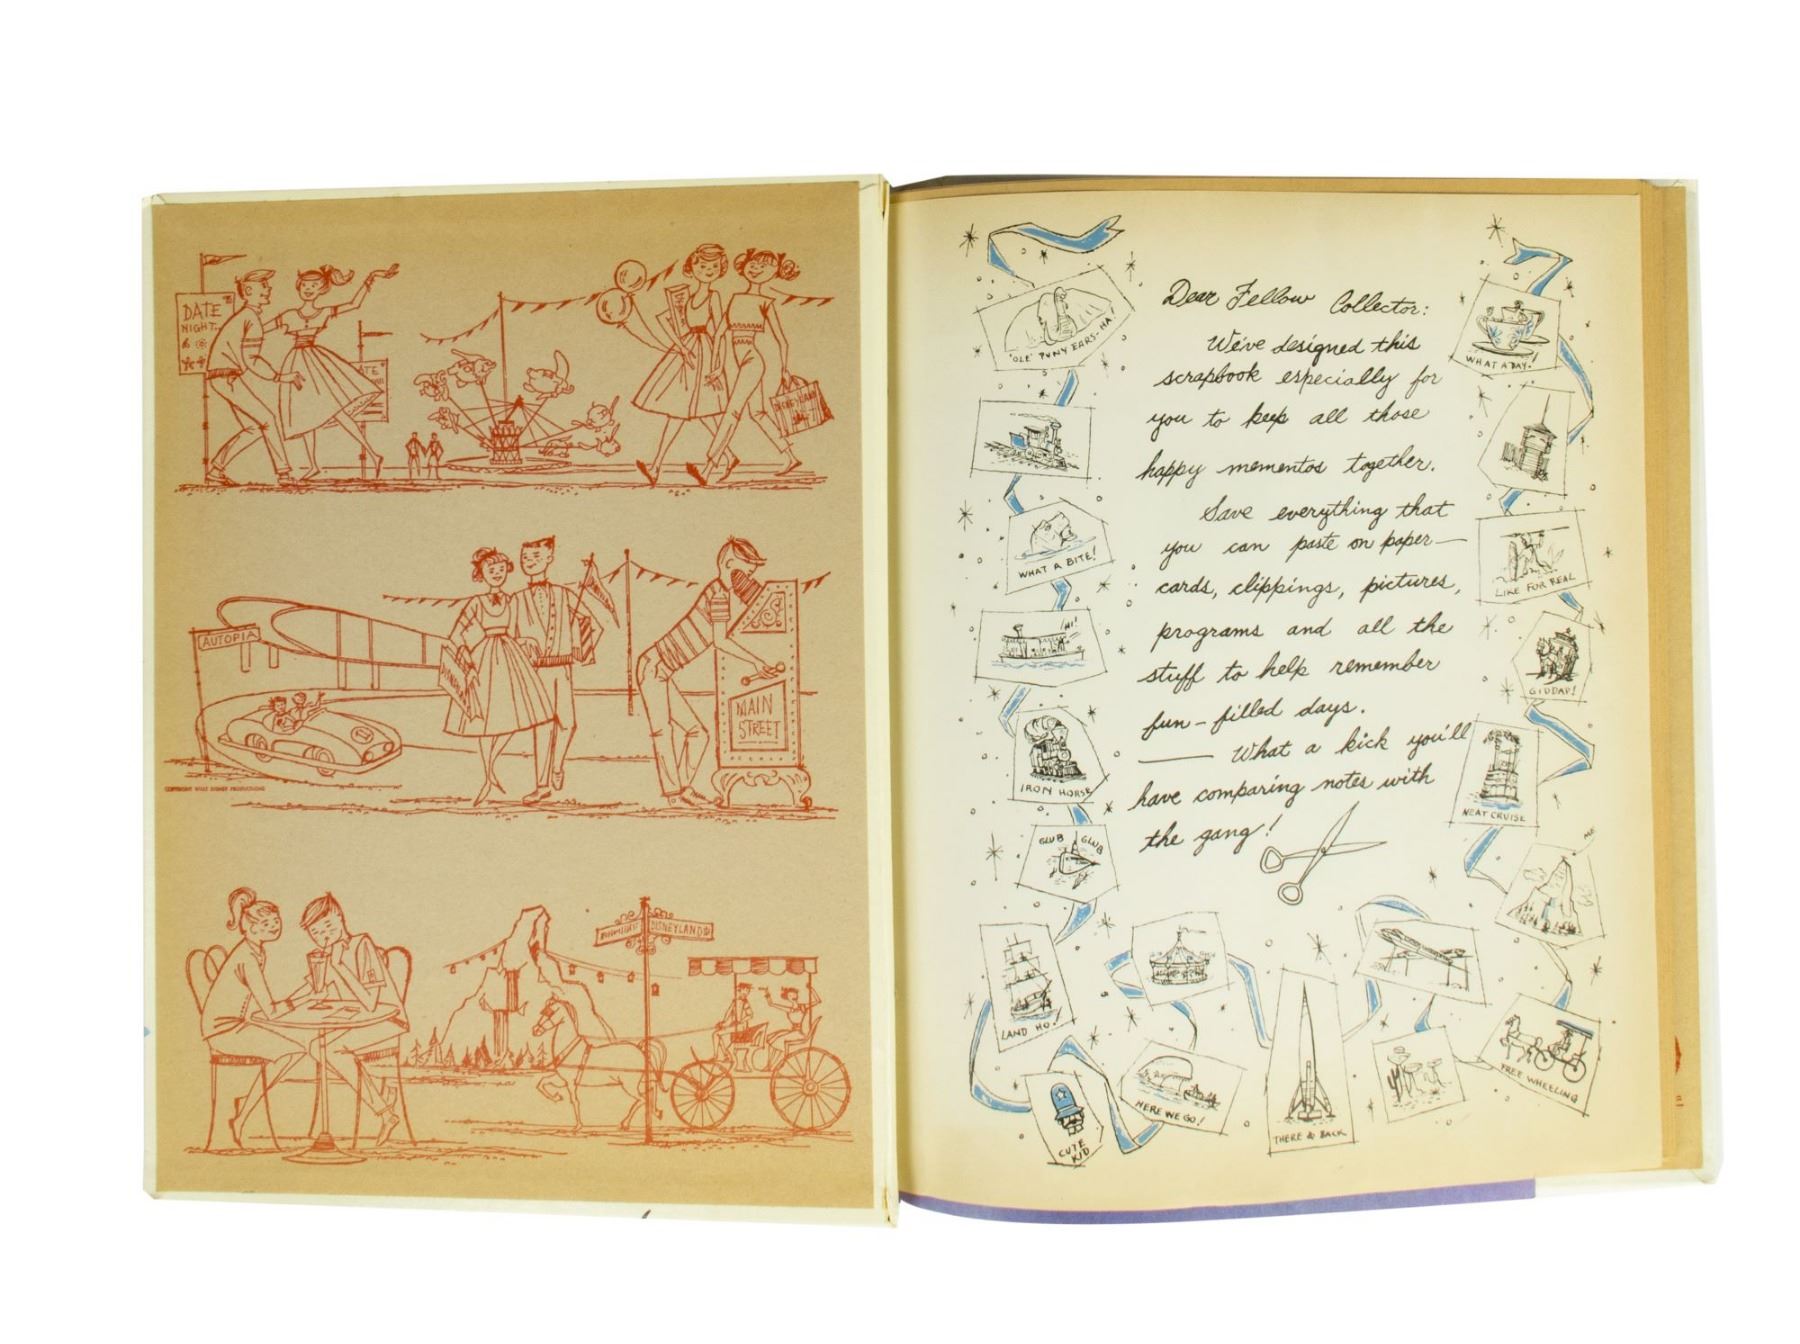 DATE
NIGHT
DISNEYLAND
AUTOPIA
MAIN
STREET
COPYRIGHT WALT DISNEY PRODUCTIONS
DISNEYLAND
Dear Fellow Collector:
We've designed this
scrapbook especially for
you to keep all those
happy mementos together.
Save everything that
you can paste on paper—
cards, clippings, pictures,
programs and all the
stuff to help remember
fun-filled days.
— What a kick you'll
have comparing notes with
the gang!
"OLE' PONY EARS-HA!
WHAT A BITE!
HI!
IRON HORSE
GLUB GLUB
LAND HO!
CUTE
KID
HERE WE GO!
THERE & BACK
WHAT A DAY!
LIKE FOR REAL
GIDDAP!
NEAT CRUISE
ME
FREE WHEELING